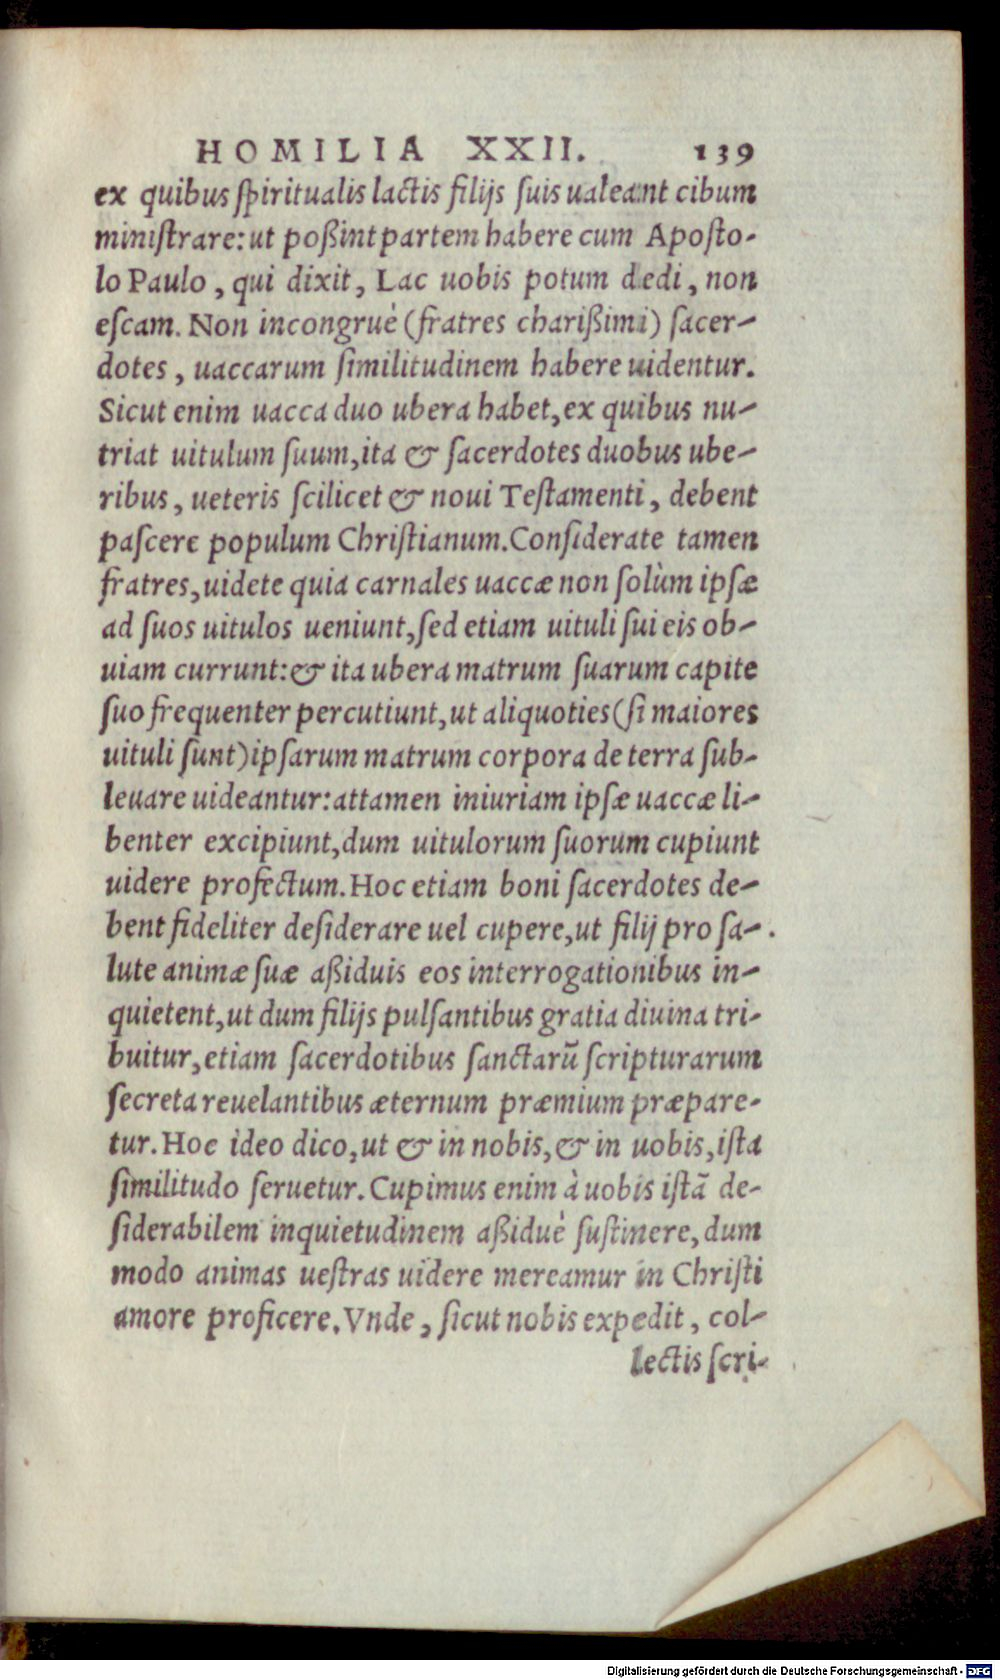 HOMILIA XXII. 139
ex quibus ſpiritualis lactis filijs ſuis ualeant cibum
miniſtrare: ut poßint partem habere cum Apoſto-
lo Paulo, qui dixit, Lac uobis potum dedi, non
eſcam. Non incongruè (fratres charißimi) ſacer-
dotes, uaccarum ſimilitudinem habere uidentur.
Sicut enim uacca duo ubera habet, ex quibus nu-
triat uitulum ſuum, ita & ſacerdotes duobus ube-
ribus, ueteris ſcilicet & noui Teſtamenti, debent
paſcere populum Chriſtianum. Conſiderate tamen
fratres, uidete quia carnales uaccæ non ſolùm ipſæ
ad ſuos uitulos ueniunt, ſed etiam uituli ſui eis ob-
uiam currunt: & ita ubera matrum ſuarum capite
ſuo frequenter percutiunt, ut aliquoties (ſi maiores
uituli ſunt) ipſarum matrum corpora de terra ſub-
leuare uideantur: attamen iniuriam ipſæ uaccæ li-
benter excipiunt, dum uitulorum ſuorum cupiunt
uidere profectum. Hoc etiam boni ſacerdotes de-
bent fideliter deſiderare uel cupere, ut filij pro ſa-
lute animæ ſuæ aßiduis eos interrogationibus in-
quietent, ut dum filijs pulſantibus gratia diuina tri-
buitur, etiam ſacerdotibus ſanctarū ſcripturarum
ſecreta reuelantibus æternum præmium præpare-
tur. Hoc ideo dico, ut & in nobis, & in uobis, iſta
ſimilitudo ſeruetur. Cupimus enim à uobis iſtã de-
ſiderabilem inquietudinem aßiduè ſuſtinere, dum
modo animas ueſtras uidere mereamur in Chriſti
amore proficere. Vnde, ſicut nobis expedit, col-
lectis ſcri-
Digitalisierung gefördert durch die Deutsche Forschungsgemeinschaft - DFG